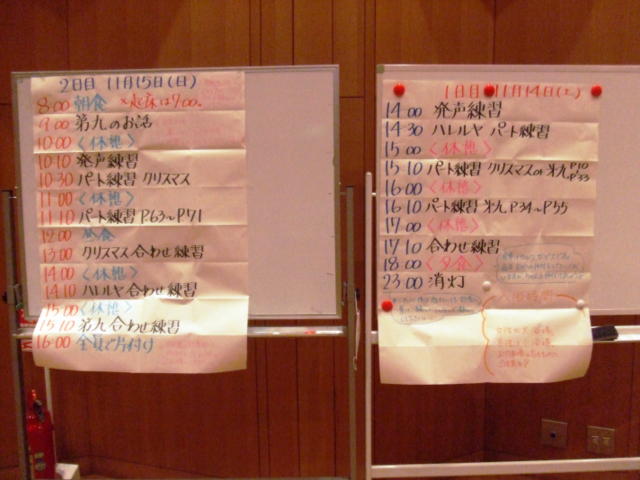 2日目 11月15日(日)
8:00 朝食 ×起床は7:00。
9:00 第九のお話
10:00 〈休憩〉
10:10 発声練習
10:30 パート練習 クリスマス
11:00 〈休憩〉
11:10 パート練習 P.63~P71
12:00 昼食
13:00 クリスマス合わせ練習
14:00 〈休憩〉
14:10 ハレルヤ合わせ練習
15:00 〈休憩〉
15:10 第九合わせ練習
16:00 全員で片付け
1日目 11月14日(土)
14:00 発声練習
14:30 ハレルヤ パート練習
15:00 〈休憩〉
15:10 パート練習 クリスマスor 第九
16:00 〈休憩〉
16:10 パート練習 第九 P.34~P.55
17:00 〈休憩〉
17:10 合わせ練習
18:00 〈夕食〉
23:00 消灯